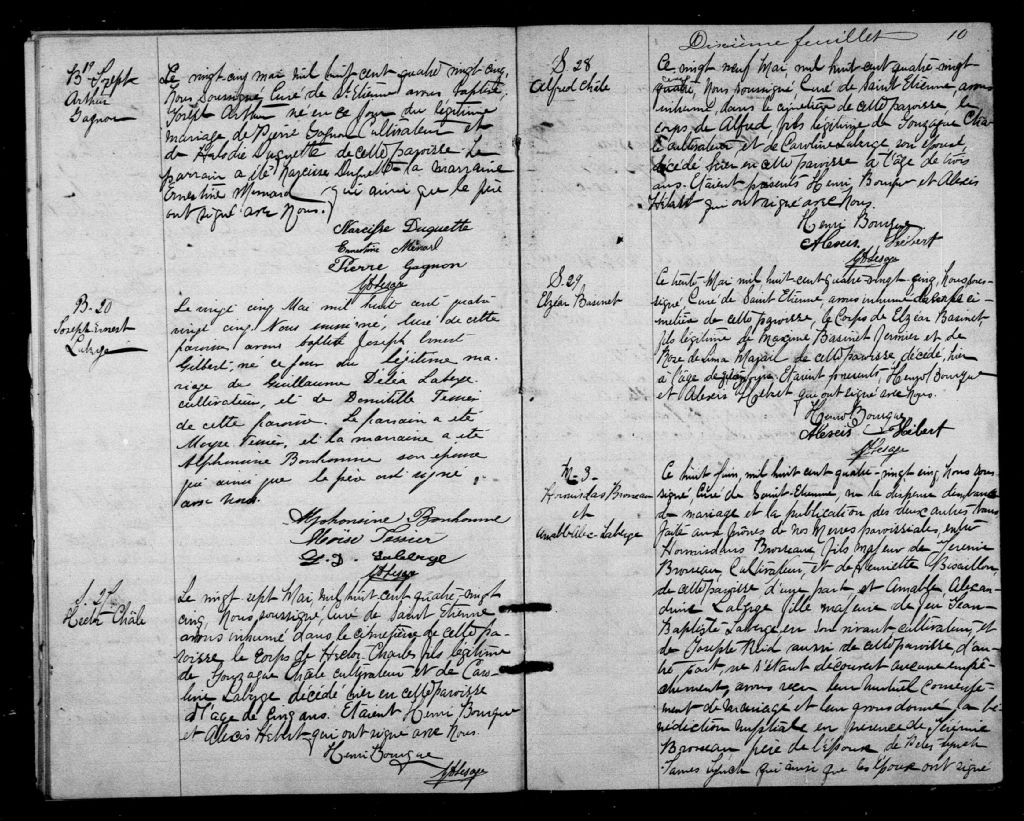 B. 19 Joseph
Arthur
Gagnon
Le vingt cinq mai mil huit cent quatre vingt cinq,
Nous soussigné Curé de St Etienne avons baptisé
Joseph Arthur né en ce jour du légitime
mariage de Pierre Gagnon Cultivateur et
de Duquette de cette paroisse Le
parrain a été Narcisse Duquette la marraine
Ernestine Menard qui ainsi que le père
ont signé avec Nous.
Narcisse Duquette
Ernestine Ménard
Pierre Gagnon
B. 20
Joseph Ernest
Laberge
Le vingt cinq Mai mil huit cent quatre
vingt cinq Nous soussigné, Curé de cette
paroisse avons baptisé Joseph Ernest
Gilbert, né ce jour du légitime ma-
riage de Guillaume Déléa Laberge
cultivateur, et de Domitille Tessier
de cette paroisse. Le parrain a été
Moyse Tessier, et la marraine a été
Alphonsine Bonhomme son épouse
qui ainsi que le père ont signé,
avec nous.
Alphonsine Bonhomme
Moïse Tessier
G. D. Laberge
S. 27
Hector Châle
Le vingt sept Mai, mil huit cent quatre-vingt
cinq, Nous, soussigné, Curé de Saint Etienne
avons inhumé dans le cimetière de cette pa-
roisse le corps de Hector-Charles fils légitime
de Gonzague Châle cultivateur et de Caro-
line Laberge décédé hier en cette paroisse
à l'age de cinq ans. Etaient Henri Bourque
et Alexis Hébert qui ont signé avec Nous.
Henri Bourque
Dixième feuillet 10
S 28
Alfred Châle
Ce vingt neuf Mai, mil huit cent quatre vingt
Nous soussigné, Curé de Saint Etienne, avons
inhumé, dans le cimetière de cette paroisse, le
corps de Alfred, fils légitime de Gonzague Châle
cultivateur et de Caroline Laberge son épouse,
décédé hier en cette paroisse à l'âge de trois
ans. Etaient présents Henri Bourque et Alexis
Hébert qui ont signé avec Nous.
Henri Bourque
Alexis Hébert
S. 29
Elzéar Basinet
Ce trente Mai, mil huit-cent-quatre-vingt cinq, Nous sous-
signé, Curé de Saint Etienne, avons inhumé ci-
metière de cette paroisse, le Corps de Elzéar Basinet,
fils légitime de Maxime Basinet fermier et de
Roze de Lima de cette paroisse, décédé, hier
à l'âge de Etaient présents, Henry Bourque
et Alexis Hébert qui ont signé avec Nous.
Henri Bourque
Alexis Hébert
M. 3
Hormisdas Brosseau
et
Laberge
Ce huit Juin, mil huit cent quatre-vingt cinq Nous sous-
signé, Curé de Saint-Etienne, vu la dispense d'un ban
de mariage et la publication des deux autres bans
faite aux prônes de nos Messes paroissiales, entre
Hormisdas Brosseau, fils majeur de Jérémie
Brosseau, Cultivateur, et de Henriette Bisaillon,
de cette paroisse d'une part, et Amable Alexan-
drine Laberge fille majeure de feu Jean-
Baptiste Laberge, en son vivant cultivateur, et
de Reid aussi de cette paroisse, d'au-
tre part, ne s'étant découvert aucune empê-
chement, avons reçu leur mutuel consente-
ment de mariage et leur avons donné la bé-
nédiction nuptiale en présence de Jérémie
Brosseau père de l'époux, de Lynch
James Lynch qui ainsi que les époux ont signé